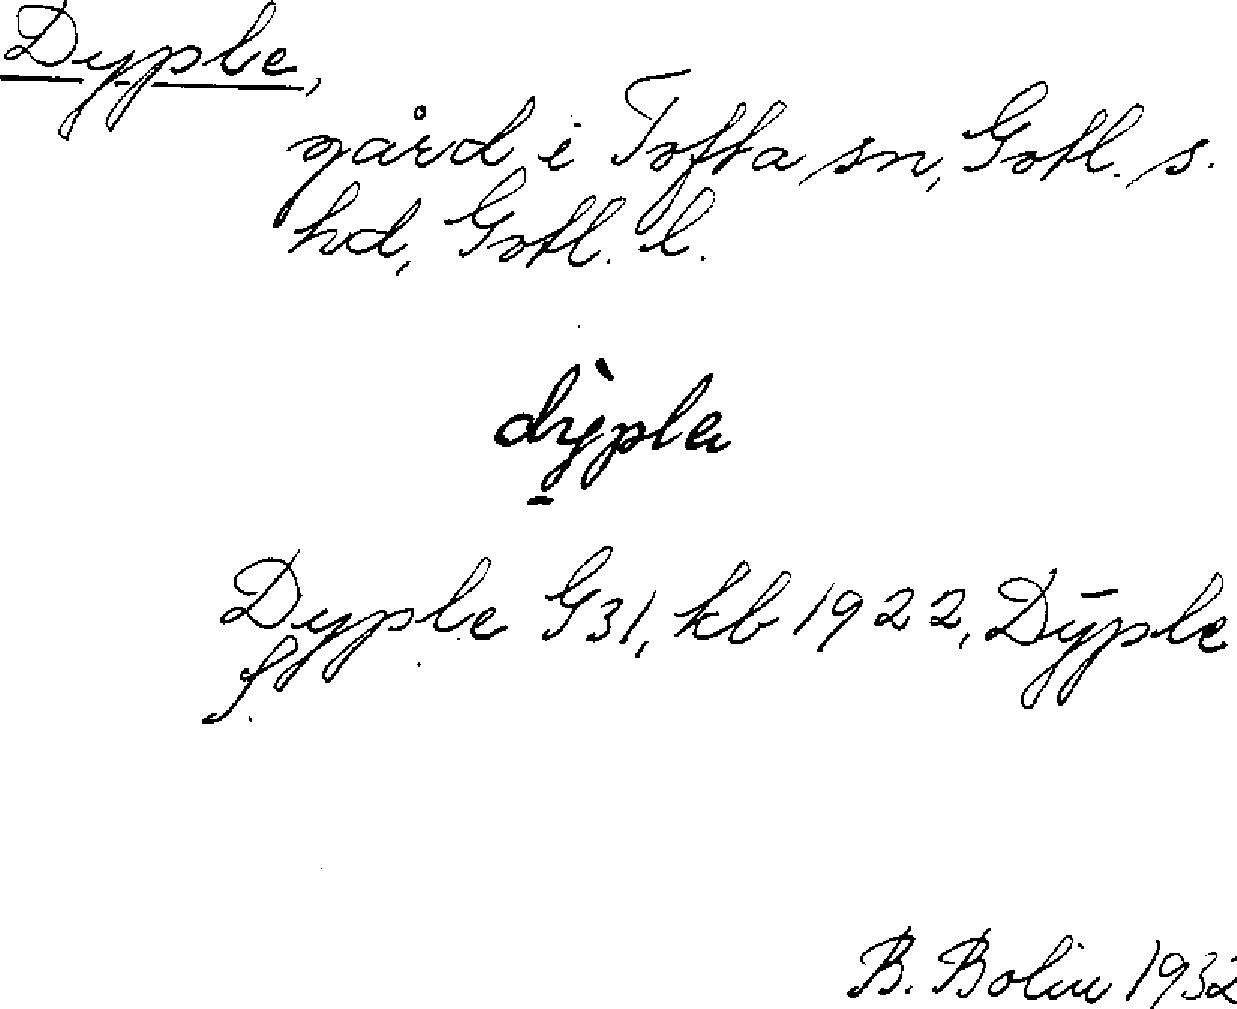 Dyple,
gård i Tofta sn, Gotl. s.
hd, Gotl. l.
dỳ̱pla
Dyple G31, kb 1922, Dȳple
f.
B. Bolin 1932